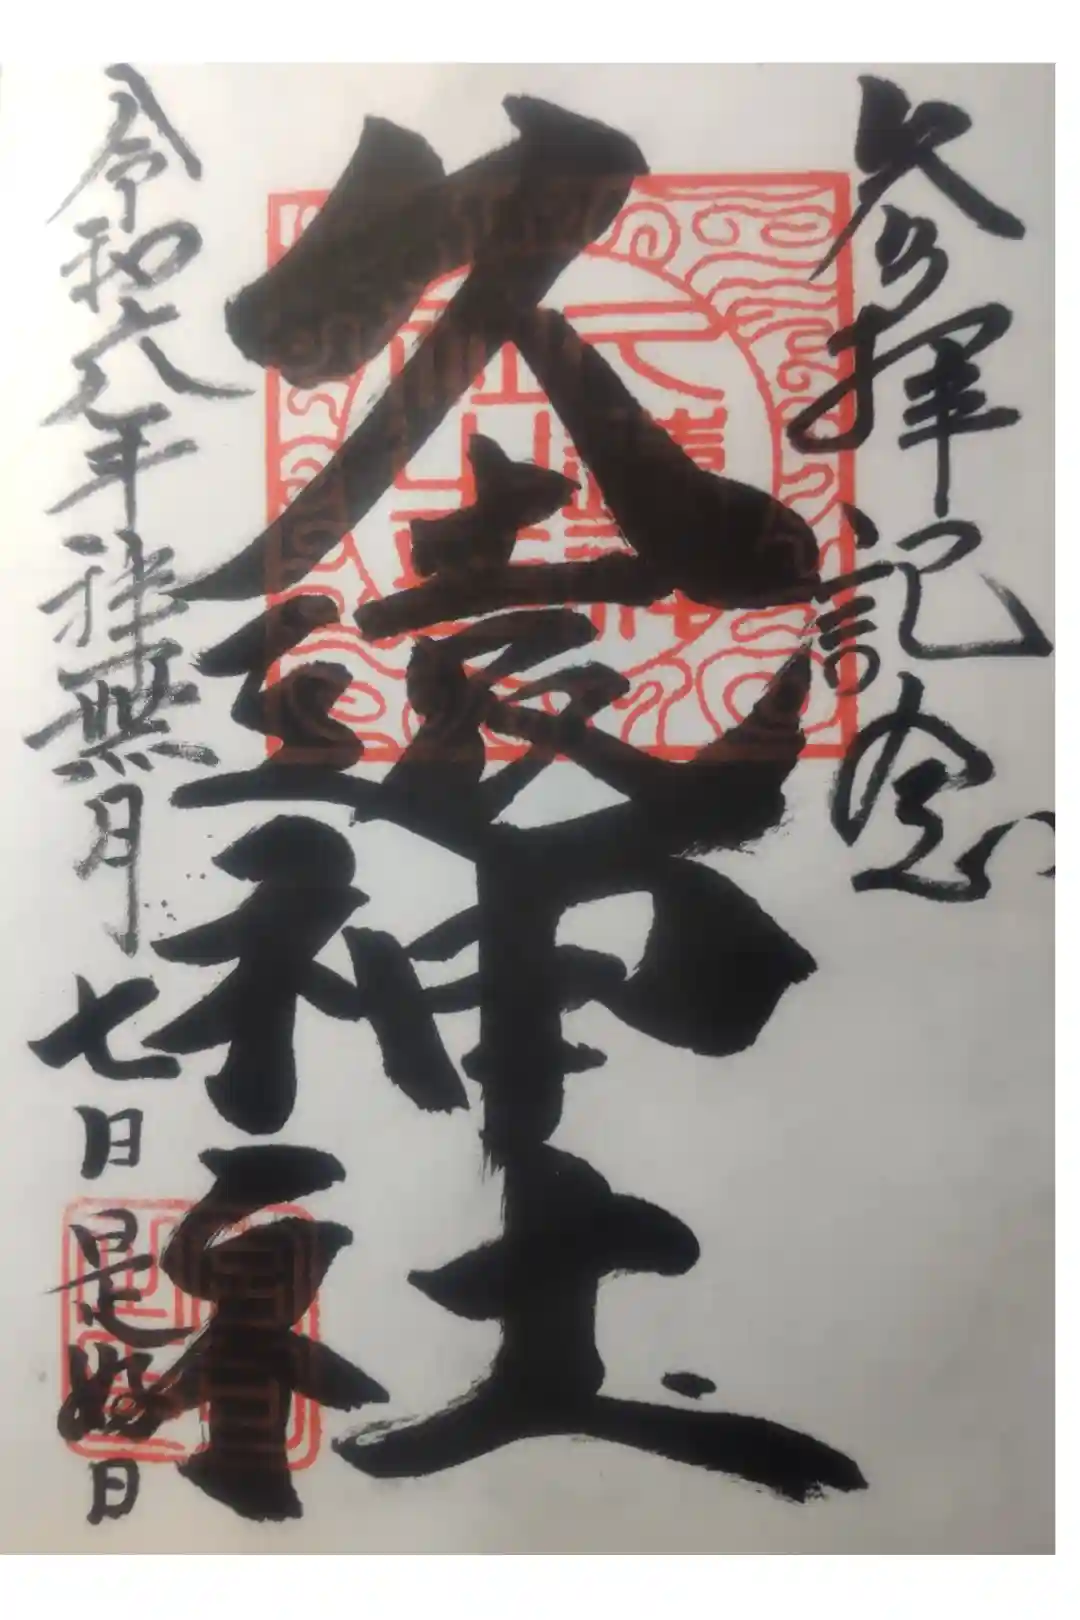 参拝記念
久遠神社
令和六年神無月七日是好日